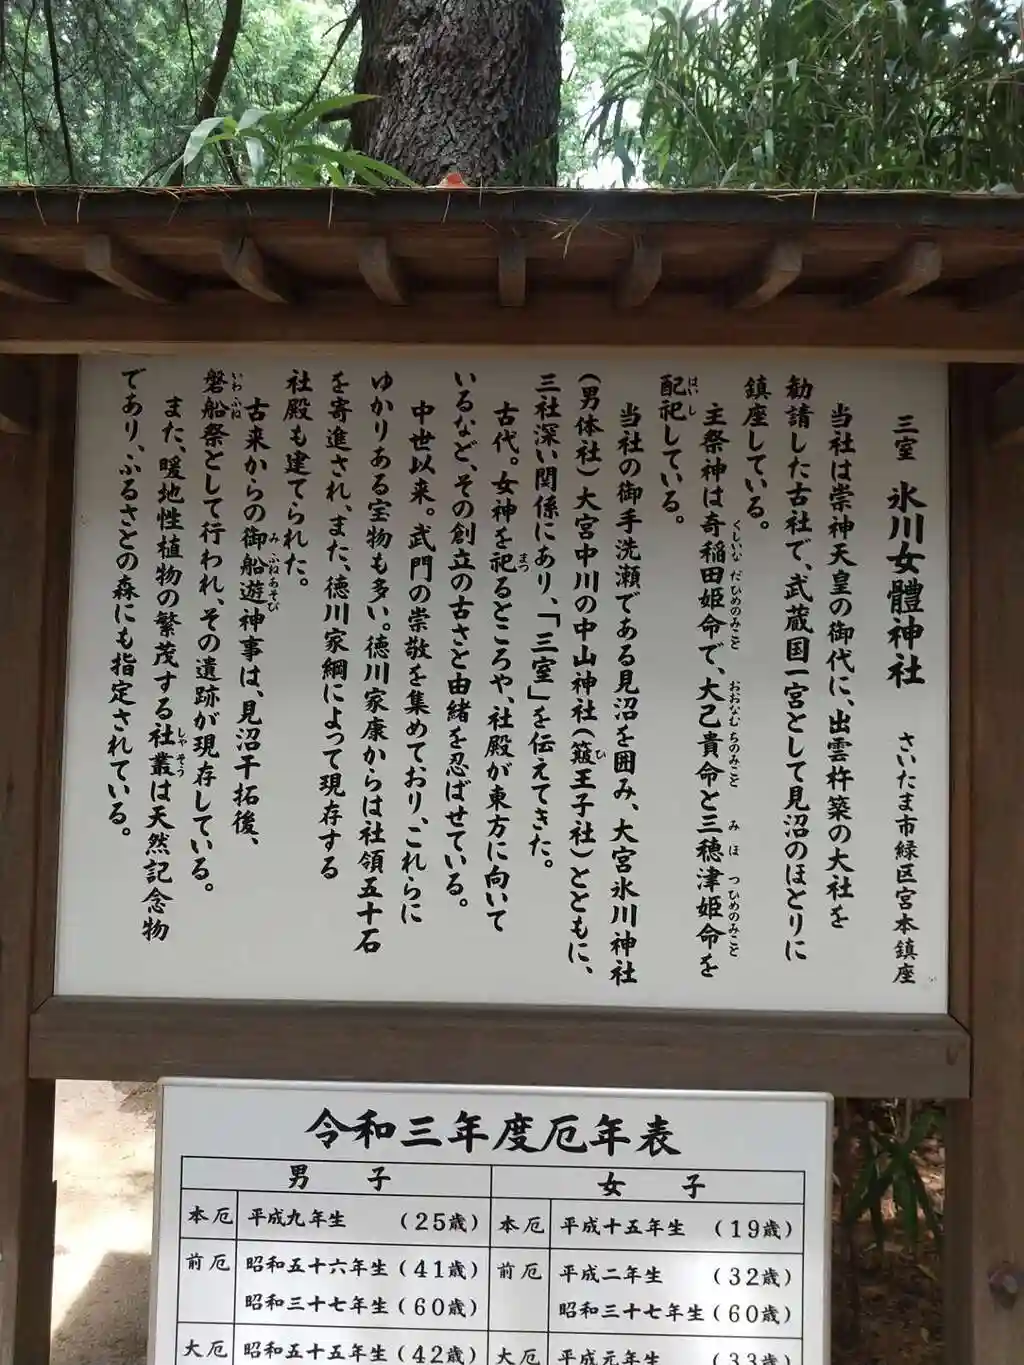 三室 氷川女體神社 さいたま市緑区宮本鎮座
当社は崇神天皇の御代に、出雲杵築の大社を
勧請した古社で、武蔵国一宮として見沼のほとりに
鎮座している。
主祭神は奇稲田姫命で、大己貴命と三穂津姫命を
くしいなだひめのみこと おおなむちのみこと みほつひめのみこと
配祀している。
はいし
当社の御手洗瀬である見沼を囲み、大宮氷川神社
(男体社)大宮中川の中山神社(簸王子社)とともに、
ひ
三社深い関係にあり、「三室」を伝えてきた。
古代。女神を祀るところや、社殿が東方に向いて
まつ
いるなど、その創立の古さと由緒を忍ばせている。
中世以来。武門の崇敬を集めており、これらに
ゆかりある宝物も多い。徳川家康からは社領五十石
を寄進され、また、徳川家綱によって現存する
社殿も建てられた。
古来からの御船遊神事は、見沼干拓後、
みふねあそび
磐船祭として行われ、その遺跡が現存している。
いわふね
また、暖地性植物の繁茂する社叢は天然記念物
しゃそう
であり、ふるさとの森にも指定されている。
令和三年度厄年表
男子 女子
本厄 平成九年生 (25歳) 本厄 平成十五年生 (19歳)
前厄 昭和五十六年生(41歳) 前厄 平成二年生 (32歳)
昭和三十七年生(60歳) 昭和三十七年生(60歳)
大厄 昭和五十五年生(42歳) 大厄 平成元年生 (33歳)